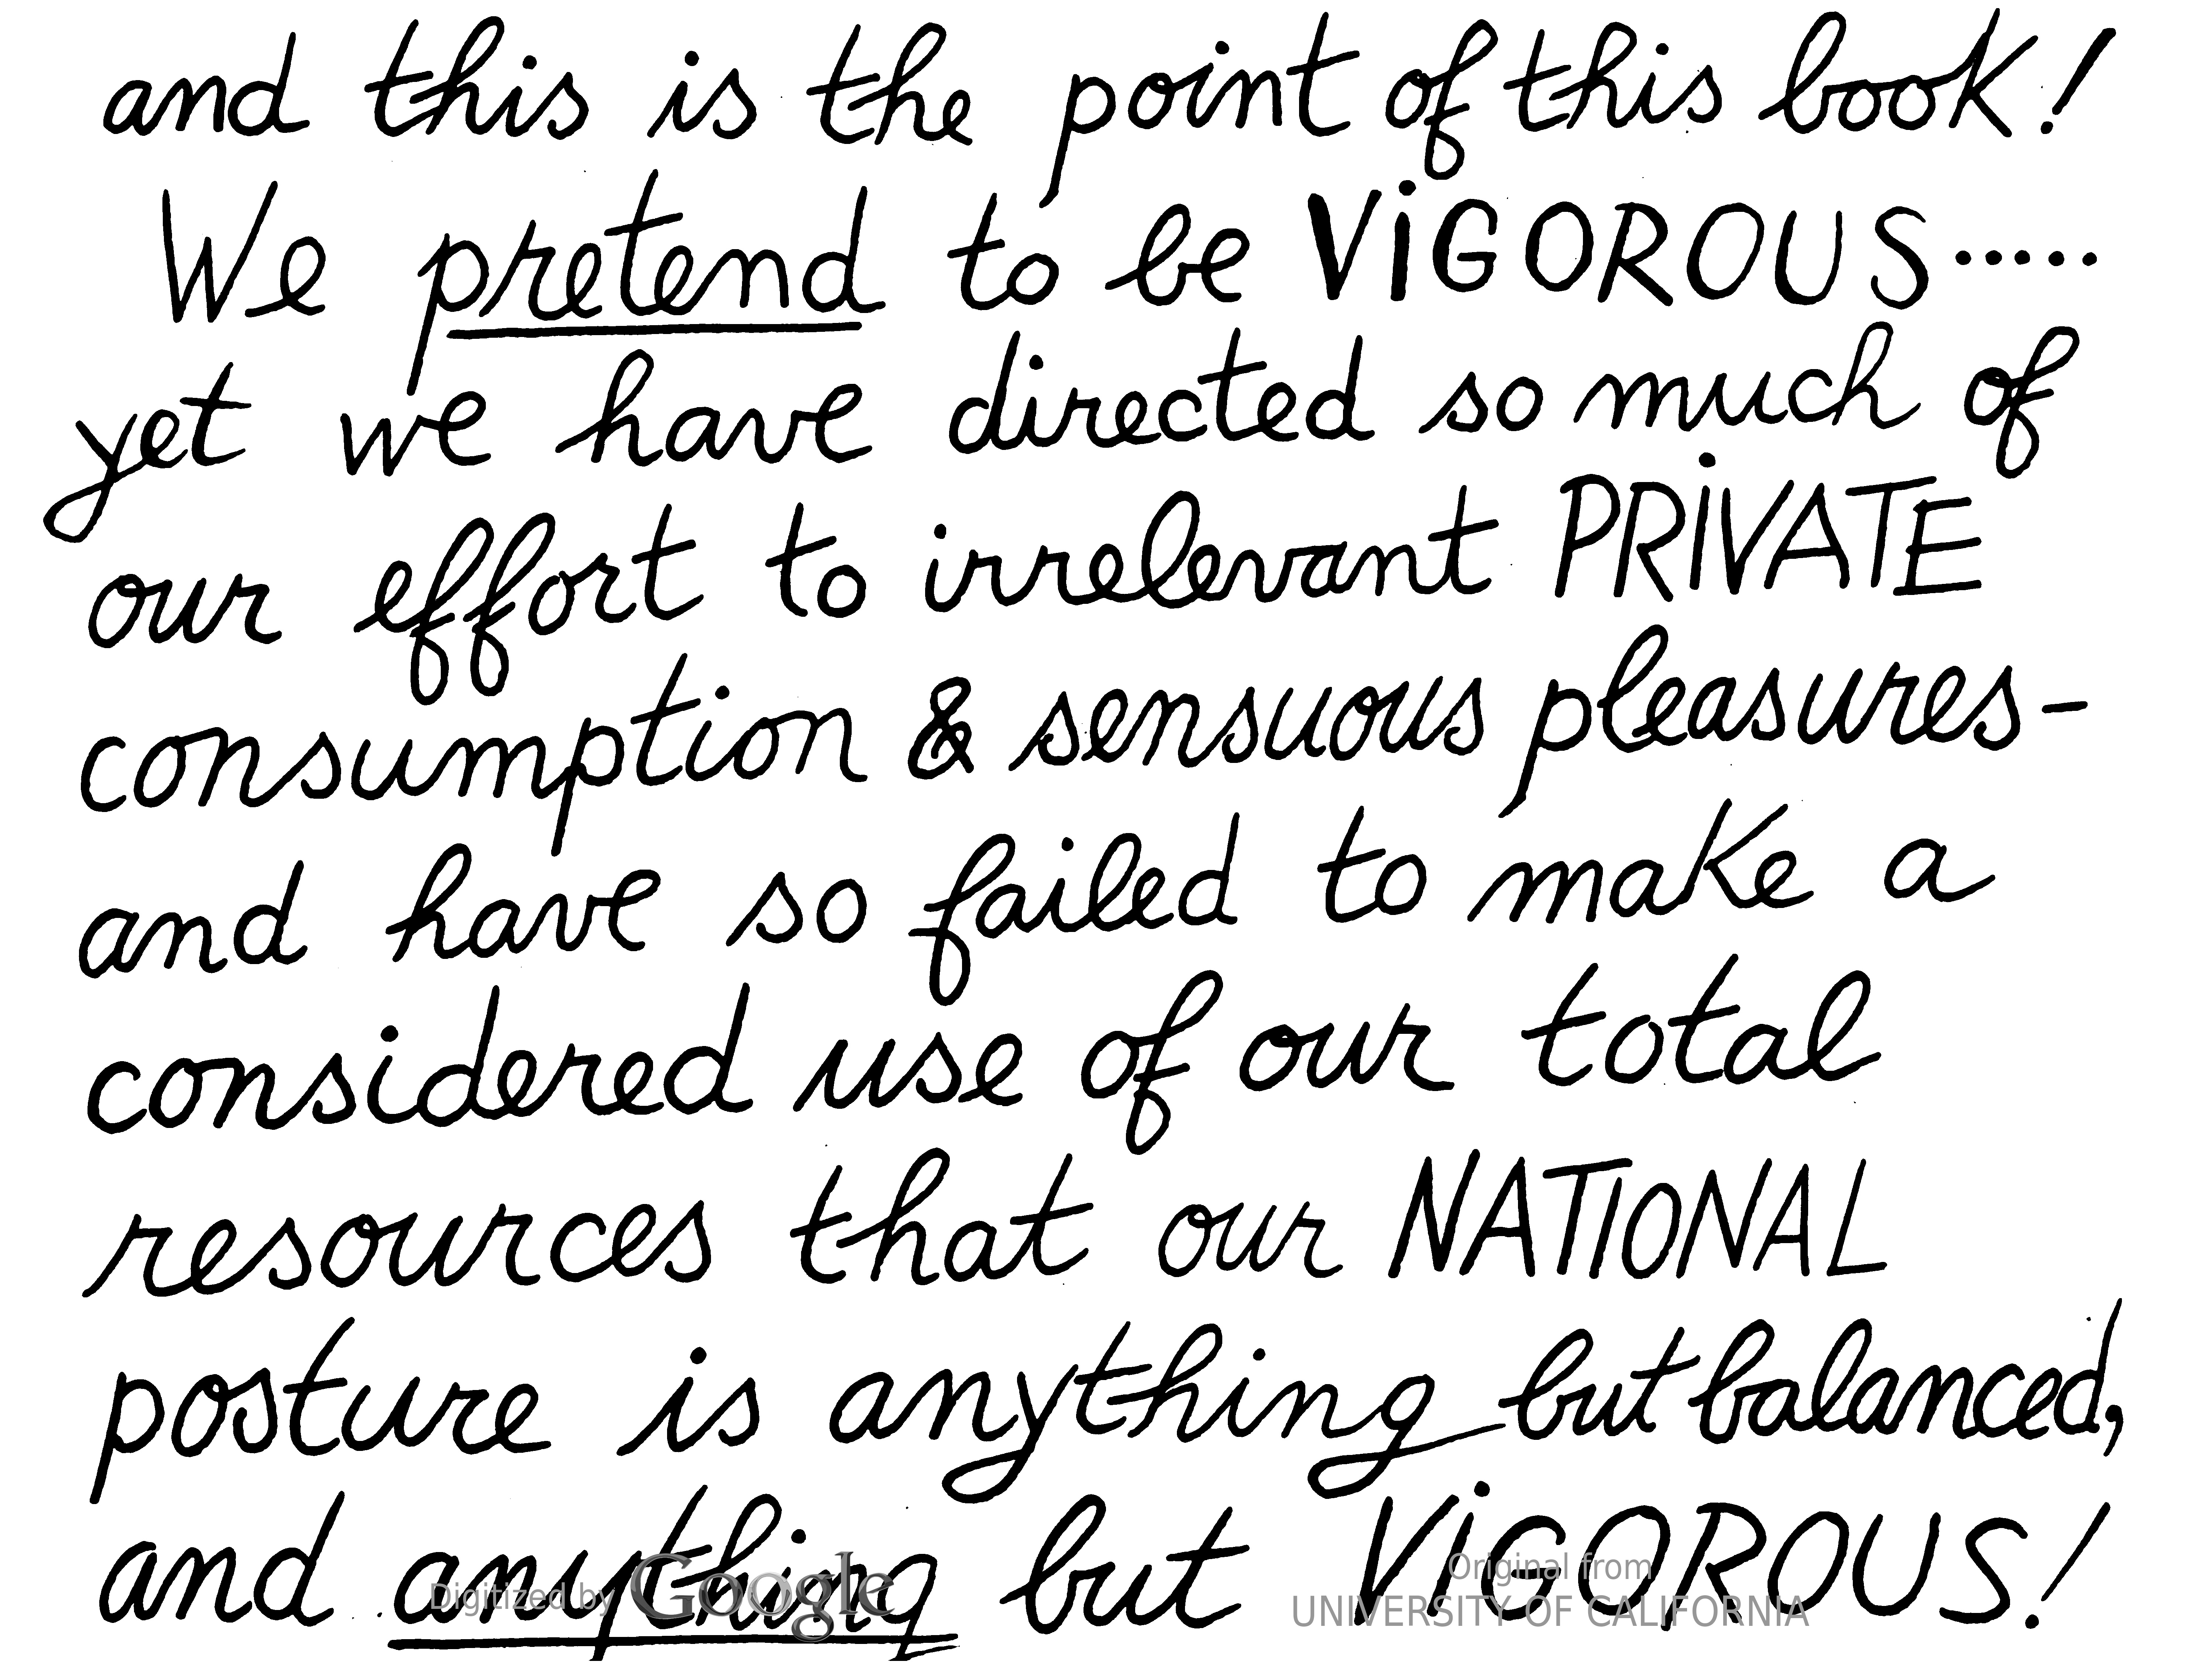 and this is the point of this book!
We pretend to be ViGOROUS.....
yet we have directed so much of
our effort to irrelevant PRiVATE
consumption & sensuous pleasures-
and have so failed to make a
considered use of our total
resources that our NATIONAL
posture is anything but balanced,
and anything but ViGOROUS!
Digitized by Google
Original from
UNIVERSITY OF CALIFORNIA